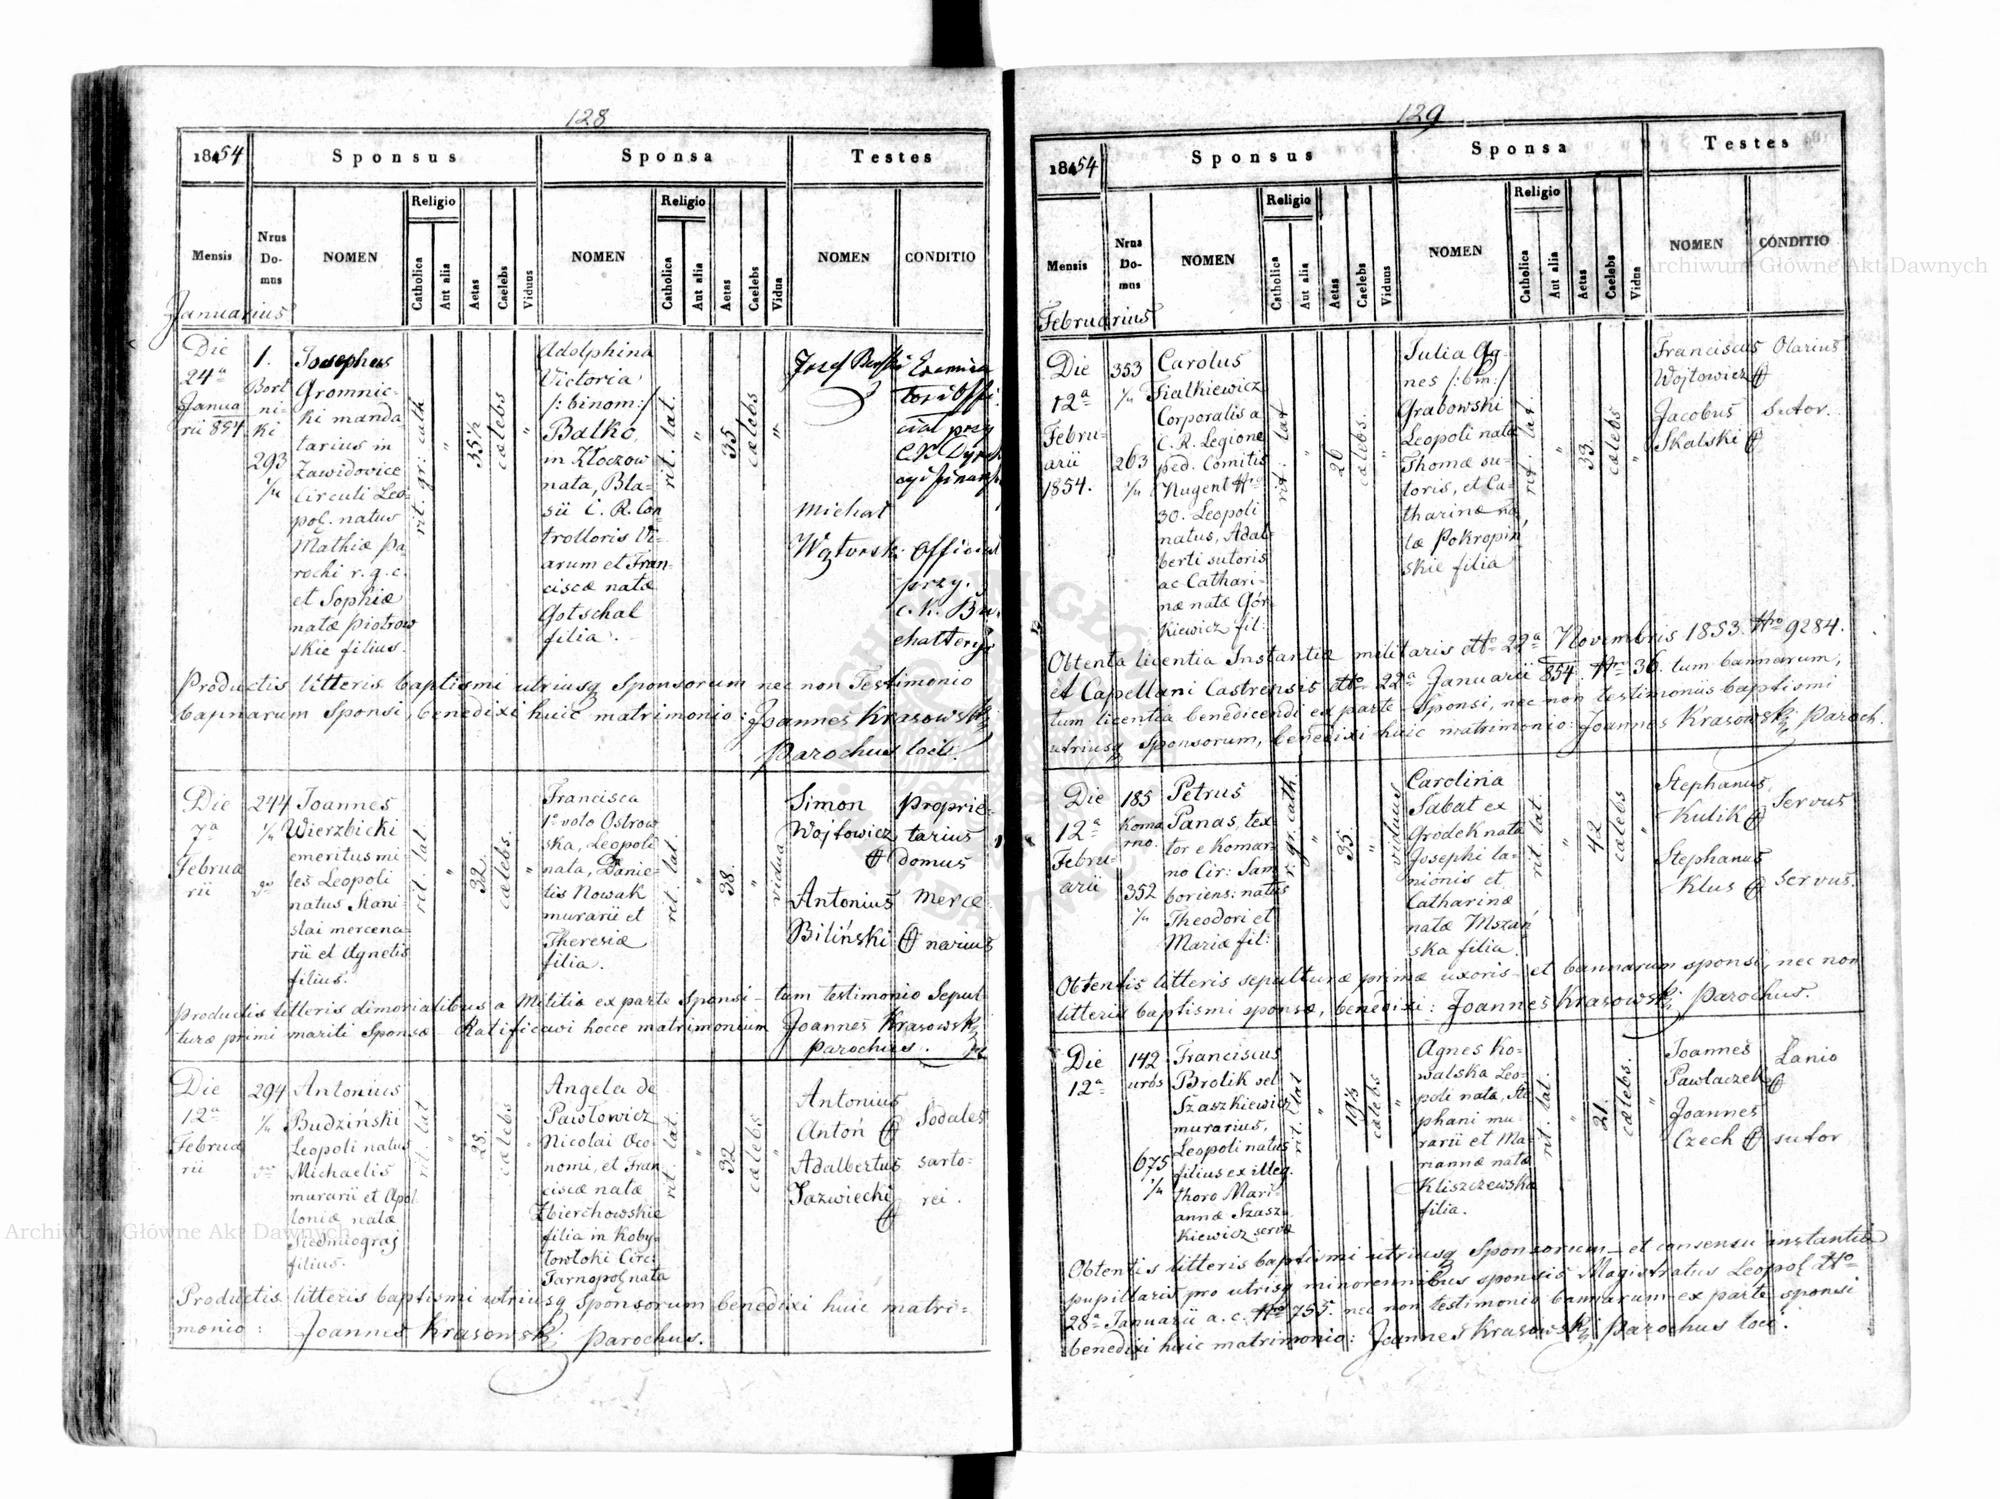 128
1854
Sponsus
Sponsa
Testes
Mensis
Nrus Do-mus
NOMEN
Religio
Catholica
Aut alia
Aetas
Caelebs
Viduus
NOMEN
Religio
Catholica
Aut alia
Aetas
Caelebs
Vidua
NOMEN
CONDITIO
Januarius
Die
24ª
Janua
rii 854
1.
Bort
ni-
ki
293
1/4
Josephus
Gromnic-
ki manda
tarius in
Zawidovice
Circuli Leo-
pol. natus
Mathiæ Pa
rochi r. g. c.
et Sophiæ
natæ Piotrow
skie filius.
rit. gr: cath
"
35½
cælebs
"
Adolphina
Victoria
/: binom:/
Balko,
in Złoczow
nata, Bla-
sii C. R. Con
trolloris Vi-
arum et Fran-
ciscæ natæ
Gotschal
filia.
rit. lat.
"
35
cælebs
"
Josef
Michał
offi-
przy
przy
Productis litteris baptismi utriusq Sponsorum nec non Testimonio
bannarum Sponsi, benedixi huic matrimonio: Joannes Krasowski
Parochus loci.
Die
7ª
Februa
rii
244
1/4
do
Joannes
Wierzbicki
emeritus mi-
les Leopoli
natus Stani
slai mercena-
rii et Agnetis
filius.
rit. lat
"
32.
cælebs.
"
Francisca
1º voto Ostrow
ska, Leopoli
nata, Danie-
lis Nowak
murarii et
Theresiæ
filia.
rit. lat.
"
38.
"
vidua
Simon
Wojtowicz
Antonius
Biliński
proprie-
tarius
domus
merce
narius
Productis litteris dimorialibus a Militia ex parte Sponsi – tum testimonio Sepul
turæ primi mariti Sponsæ – Ratificavi hocce matrimonium Joannes Krasowski
Parochus.
Die
12ª
Februa
rii
294
1/4
do
Antonius
Budziński
Leopoli natus
Michaelis
murarii et Apol
loniæ natæ
Siedmiograj
filius.
rit. lat
"
28.
cælebs
"
Angela de
Pawłowicz
Nicolai Oco-
nomi, et Fran
ciscæ natæ
Zbierchowskie
filia in Koby-
łowłoki Circ:
Tarnopol nata
rit. lat.
"
32
cælebs
"
Antonius
Antoń
Adalbertus
Jazwiecki
Sodales
sarto-
rei.
Productis litteris baptismi utriusq Sponsorum benedixi huic matri-
monio: Joannes Krasowski Parochus.
129
1854
Sponsus
Sponsa
Testes
Mensis
Nrus Do-mus
NOMEN
Religio
Catholica
Aut alia
Aetas
Caelebs
Viduus
NOMEN
Religio
Catholica
Aut alia
Aetas
Caelebs
Vidua
NOMEN
CONDITIO
Februarius
Die
12ª
Febru-
arii
1854.
353
1/4
263
1/4
Carolus
Fialkiewicz
Corporalis a
C. R. Legione
ped. Comitis
Nugent Nro
30. Leopoli
natus, Adal-
berti sutoris
ac Cathari-
næ natæ Gór-
kiewicz fil:
rit. lat
"
26
cælebs.
"
Julia Ag-
nes /: bin:/
Grabowski
Leopoli nata
Thomæ su-
toris, et Ca-
tharinæ na-
tæ Pokropiń
skie filia
rit. lat.
"
33.
cælebs
"
Franciscus
Wojtowicz
Jacobus
Skalski
Olarius
Sutor.
Obtenta licentia Instantiæ militaris dto 22ª Novembris 1853. Nro 9284.
et Capellani Castrensis dto 22ª Januarii 854 Nro 36. tum bannarum,
tum licentia benedicendi ex parte Sponsi, nec non testimoniis baptismi
utriusq Sponsorum, benedixi huic matrimonio: Joannes Krasowski, Paroch.
Die
12ª
Febru-
arii
185
Komar
no.
352
1/4
Petrus
Panas, tex-
tor e Komar-
no Cir: Sam
boriens: natus
Theodori et
Mariæ fil:
r. gr. cath.
"
35.
"
viduus
Carolina
Sabat ex
Grodek nata
Josephi la-
nionis et
Catharinæ
natæ Mszań
ska filia.
rit. lat.
"
42
cælebs
"
Stephanus
Kulik
Stephanus
Klus
Servus
Servus.
Obtentis litteris sepulturæ primæ uxoris – et bannarum sponsi, nec non
litteris baptismi sponsæ, benedixi: Joannes Krasowski, Parochus.
Die
12ª
142
urbs
675
1/4
Franciscus
Brolik vel
Szaszkiewicz
murarius,
Leopoli natus
filius ex illeg.
thoro Mari-
annæ Szasz-
kiewicz servæ
rit. lat
"
19½
cælebs
"
Agnes Ko-
walska Leo-
poli nata, Ste
phani mu-
rarii et Ma-
riannæ natæ
Kliszczewska
filia.
rit. lat.
"
21.
cælebs.
"
Joannes
Pawlaczek
Joannes
Czech
Lanio
sutor
Obtentis litteris baptismi utriusq Sponsorum – et consensu instantiæ
pupillaris pro utrisq minorennibus sponsis Magistratus Leopol dto
28ª Januarii a. c. Nro 755. nec non testimonio bannarum ex parte sponsi
benedixi huic matrimonio: Joannes Krasowski Parochus loci.
Archiwum Główne Akt Dawnych
Archiwum Główne Akt Dawnych